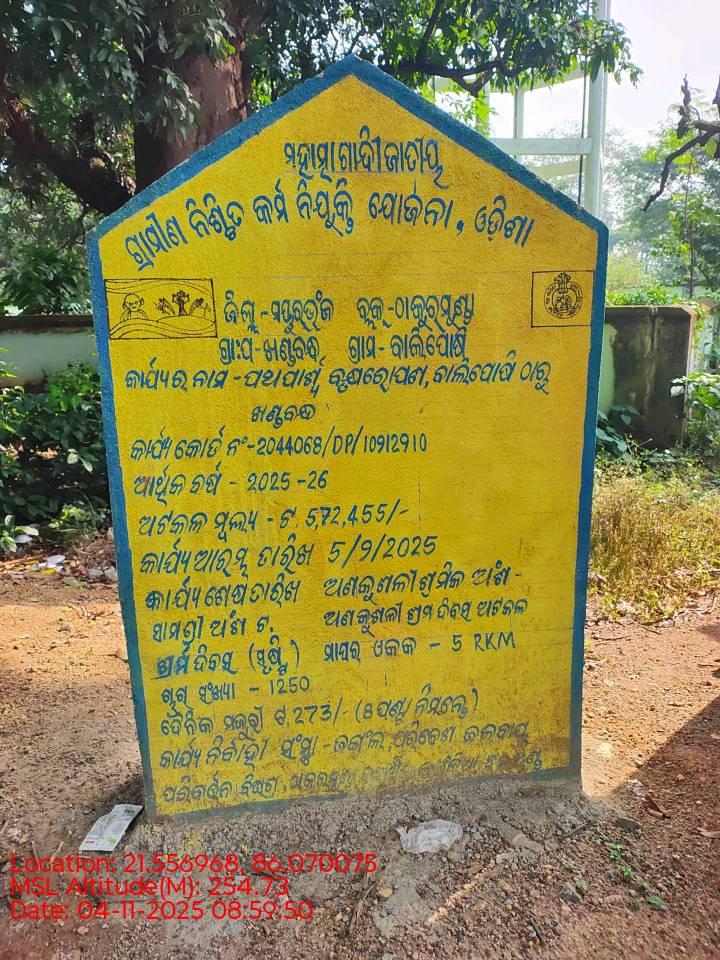 ମହାତ୍ମା ଗାନ୍ଧୀ ଜାତୀୟ
ଗ୍ରାମୀଣ ନିଶ୍ଚିତ କର୍ମ ନିଯୁକ୍ତି ଯୋଜନା, ଓଡ଼ିଶା
ଜିଲ୍ଲା-ମୟୁରଭଂଜ ବ୍ଲକ୍-ଠାକୁରମୁଣ୍ଡା
ଗ୍ରା:ପ-ଖଣ୍ଡବନ୍ଧ ଗ୍ରାମ-ବାଲିପୋଷି
କାର୍ଯ୍ୟର ନାମ-ପଥପାର୍ଶ୍ୱ ବୃକ୍ଷରୋପଣ, ବାଲିପୋଷି ଠାରୁ
ଖଣ୍ଡବନ୍ଧ
କାର୍ଯ୍ୟ କୋର୍ଡ ନଂ-2044068/DP/10912910
ଆର୍ଥିକ ବର୍ଷ - 2025-26
ଅଟକଳ ମୂଲ୍ୟ - ଟ. 5,72,455/-
କାର୍ଯ୍ୟ ଆରମ୍ଭ ତାରିଖ 5/9/2025
କାର୍ଯ୍ୟ ଶେଷ ତାରିଖ ଅଣକୁଶଳୀ ଶ୍ରମିକ ଅଂଶ -
ସାମଗ୍ରୀ ଅଂଶ ଟ. ଅଣକୁଶଳୀ ଶ୍ରମ ଦିବସ ଅଟକଳ
ଶ୍ରମ ଦିବସ (ସୃଷ୍ଟି) ମାପର ଏକକ - 5 RKM
ଚାରା ସଂଖ୍ୟା - 1250
ଦୈନିକ ମଜୁରୀ ଟ. 273/- (8 ଘଣ୍ଟା ନିମନ୍ତେ)
କାର୍ଯ୍ୟ ନିର୍ବାହୀ ସଂସ୍ଥା - ଜଙ୍ଗଲ, ପରିବେଶ ଜଳବାୟୁ
ପରିବର୍ତ୍ତନ ବିଭାଗ,
Location: 21.556968, 86.070075
MSL Altitude(M): 254.73
Date: 04-11-2025 08:59:50